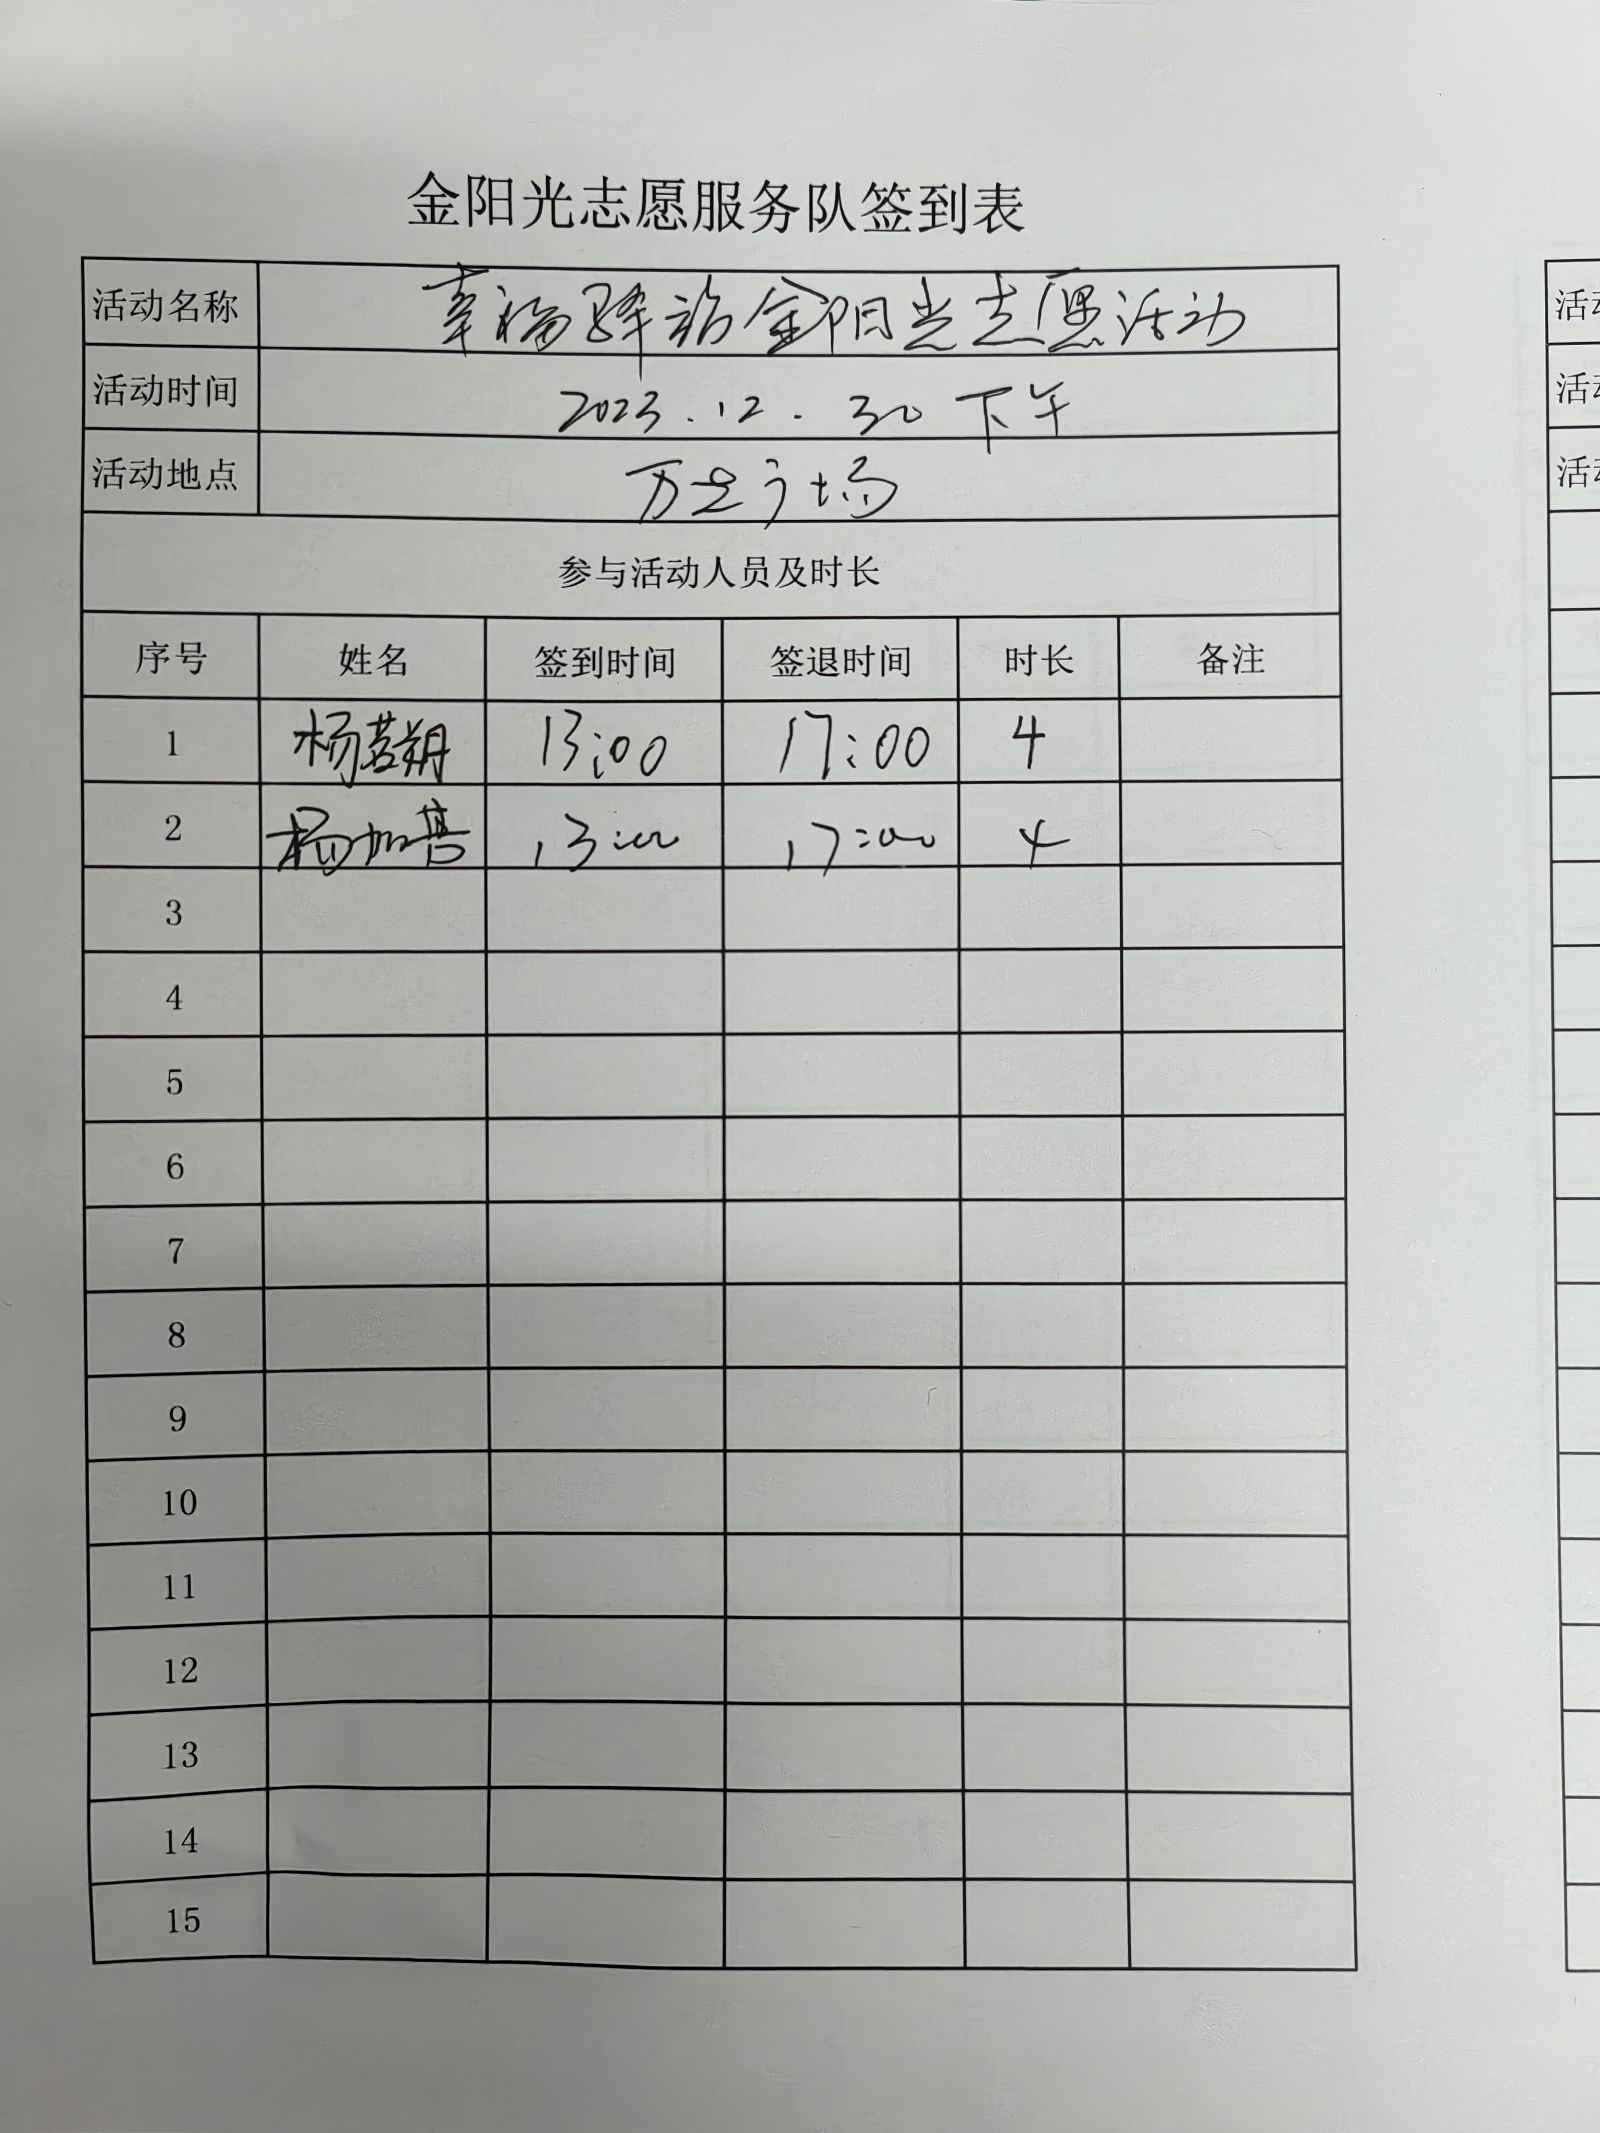 金阳光志愿服务队签到表
活动名称 幸福驿站金阳光志愿活动
活动时间 2023.12.30下午
活动地点 万达广场
参与活动人员及时长
序号 姓名 签到时间 签退时间 时长 备注
1 杨若朔 13:00 17:00 4
2 杨加善 13:00 17:00 4
3
4
5
6
7
8
9
10
11
12
13
14
15
活动
活动
活动